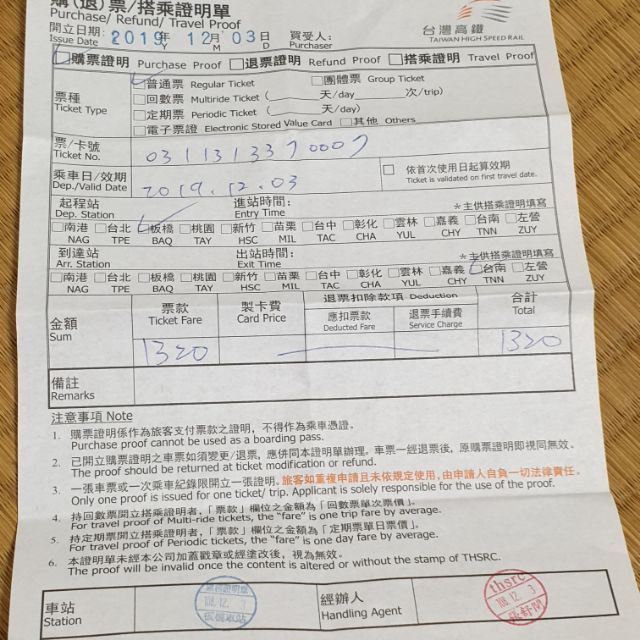 購(退)票/搭乘證明單
Purchase/ Refund/ Travel Proof
開立日期: 2019年 12月 03日
Issue Date Y M D
買受人:
Purchaser
台灣高鐵
TAIWAN HIGH SPEED RAIL
購票證明 Purchase Proof 退票證明 Refund Proof 搭乘證明 Travel Proof
票種
Ticket Type
普通票 Regular Ticket 團體票 Group Ticket
回數票 Multiride Ticket ( 天/day 次/trip)
定期票 Periodic Ticket ( 天/day)
電子票證 Electronic Stored Value Card 其他 Others
票/卡號
Ticket No.
0311313370007
乘車日/效期
Dep./Valid Date
2019.12.03
依首次使用日起算效期
Ticket is validated on first travel date.
起程站
Dep. Station
進站時間:
Entry Time
*主供搭乘證明填寫
南港 台北 板橋 桃園 新竹 苗栗 台中 彰化 雲林 嘉義 台南 左營
NAG TPE BAQ TAY HSC MIL TAC CHA YUL CHY TNN ZUY
到達站
Arr. Station
出站時間:
Exit Time
*主供搭乘證明填寫
南港 台北 板橋 桃園 新竹 苗栗 台中 彰化 雲林 嘉義 台南 左營
NAG TPE BAQ TAY HSC MIL TAC CHA YUL CHY TNN ZUY
金額
Sum
票款
Ticket Fare
製卡費
Card Price
退票扣除款項 Deduction
應扣票款
Deducted Fare
退票手續費
Service Charge
合計
Total
1320
1320
備註
Remarks
注意事項 Note
1. 購票證明係作為旅客支付票款之證明,不得作為乘車憑證。
Purchase proof cannot be used as a boarding pass.
2. 已開立購票證明之車票如須變更/退票,應併同本證明單辦理。車票一經退票後,原購票證明即視同無效。
The proof should be returned at ticket modification or refund.
3. 一張車票或一次乘車紀錄限開立一張證明。旅客如重複申請且未依規定使用,由申請人自負一切法律責任。
Only one proof is issued for one ticket/ trip. Applicant is solely responsible for the use of the proof.
4. 持回數票開立搭乘證明者,「票款」欄位之金額為「回數票單次票價」。
For travel proof of Multi-ride tickets, the "fare" is one trip fare by average.
5. 持定期票開立搭乘證明者,「票款」欄位之金額為「定期票單日票價」。
For travel proof of Periodic tickets, the "fare" is one day fare by average.
6. 本證明單未經本公司加蓋戳章或經塗改後,視為無效。
The proof will be invalid once the content is altered or without the stamp of THSRC.
車站
Station
108.12. 3
板橋車站
經辦人
Handling Agent
thsrc
108.12. 3